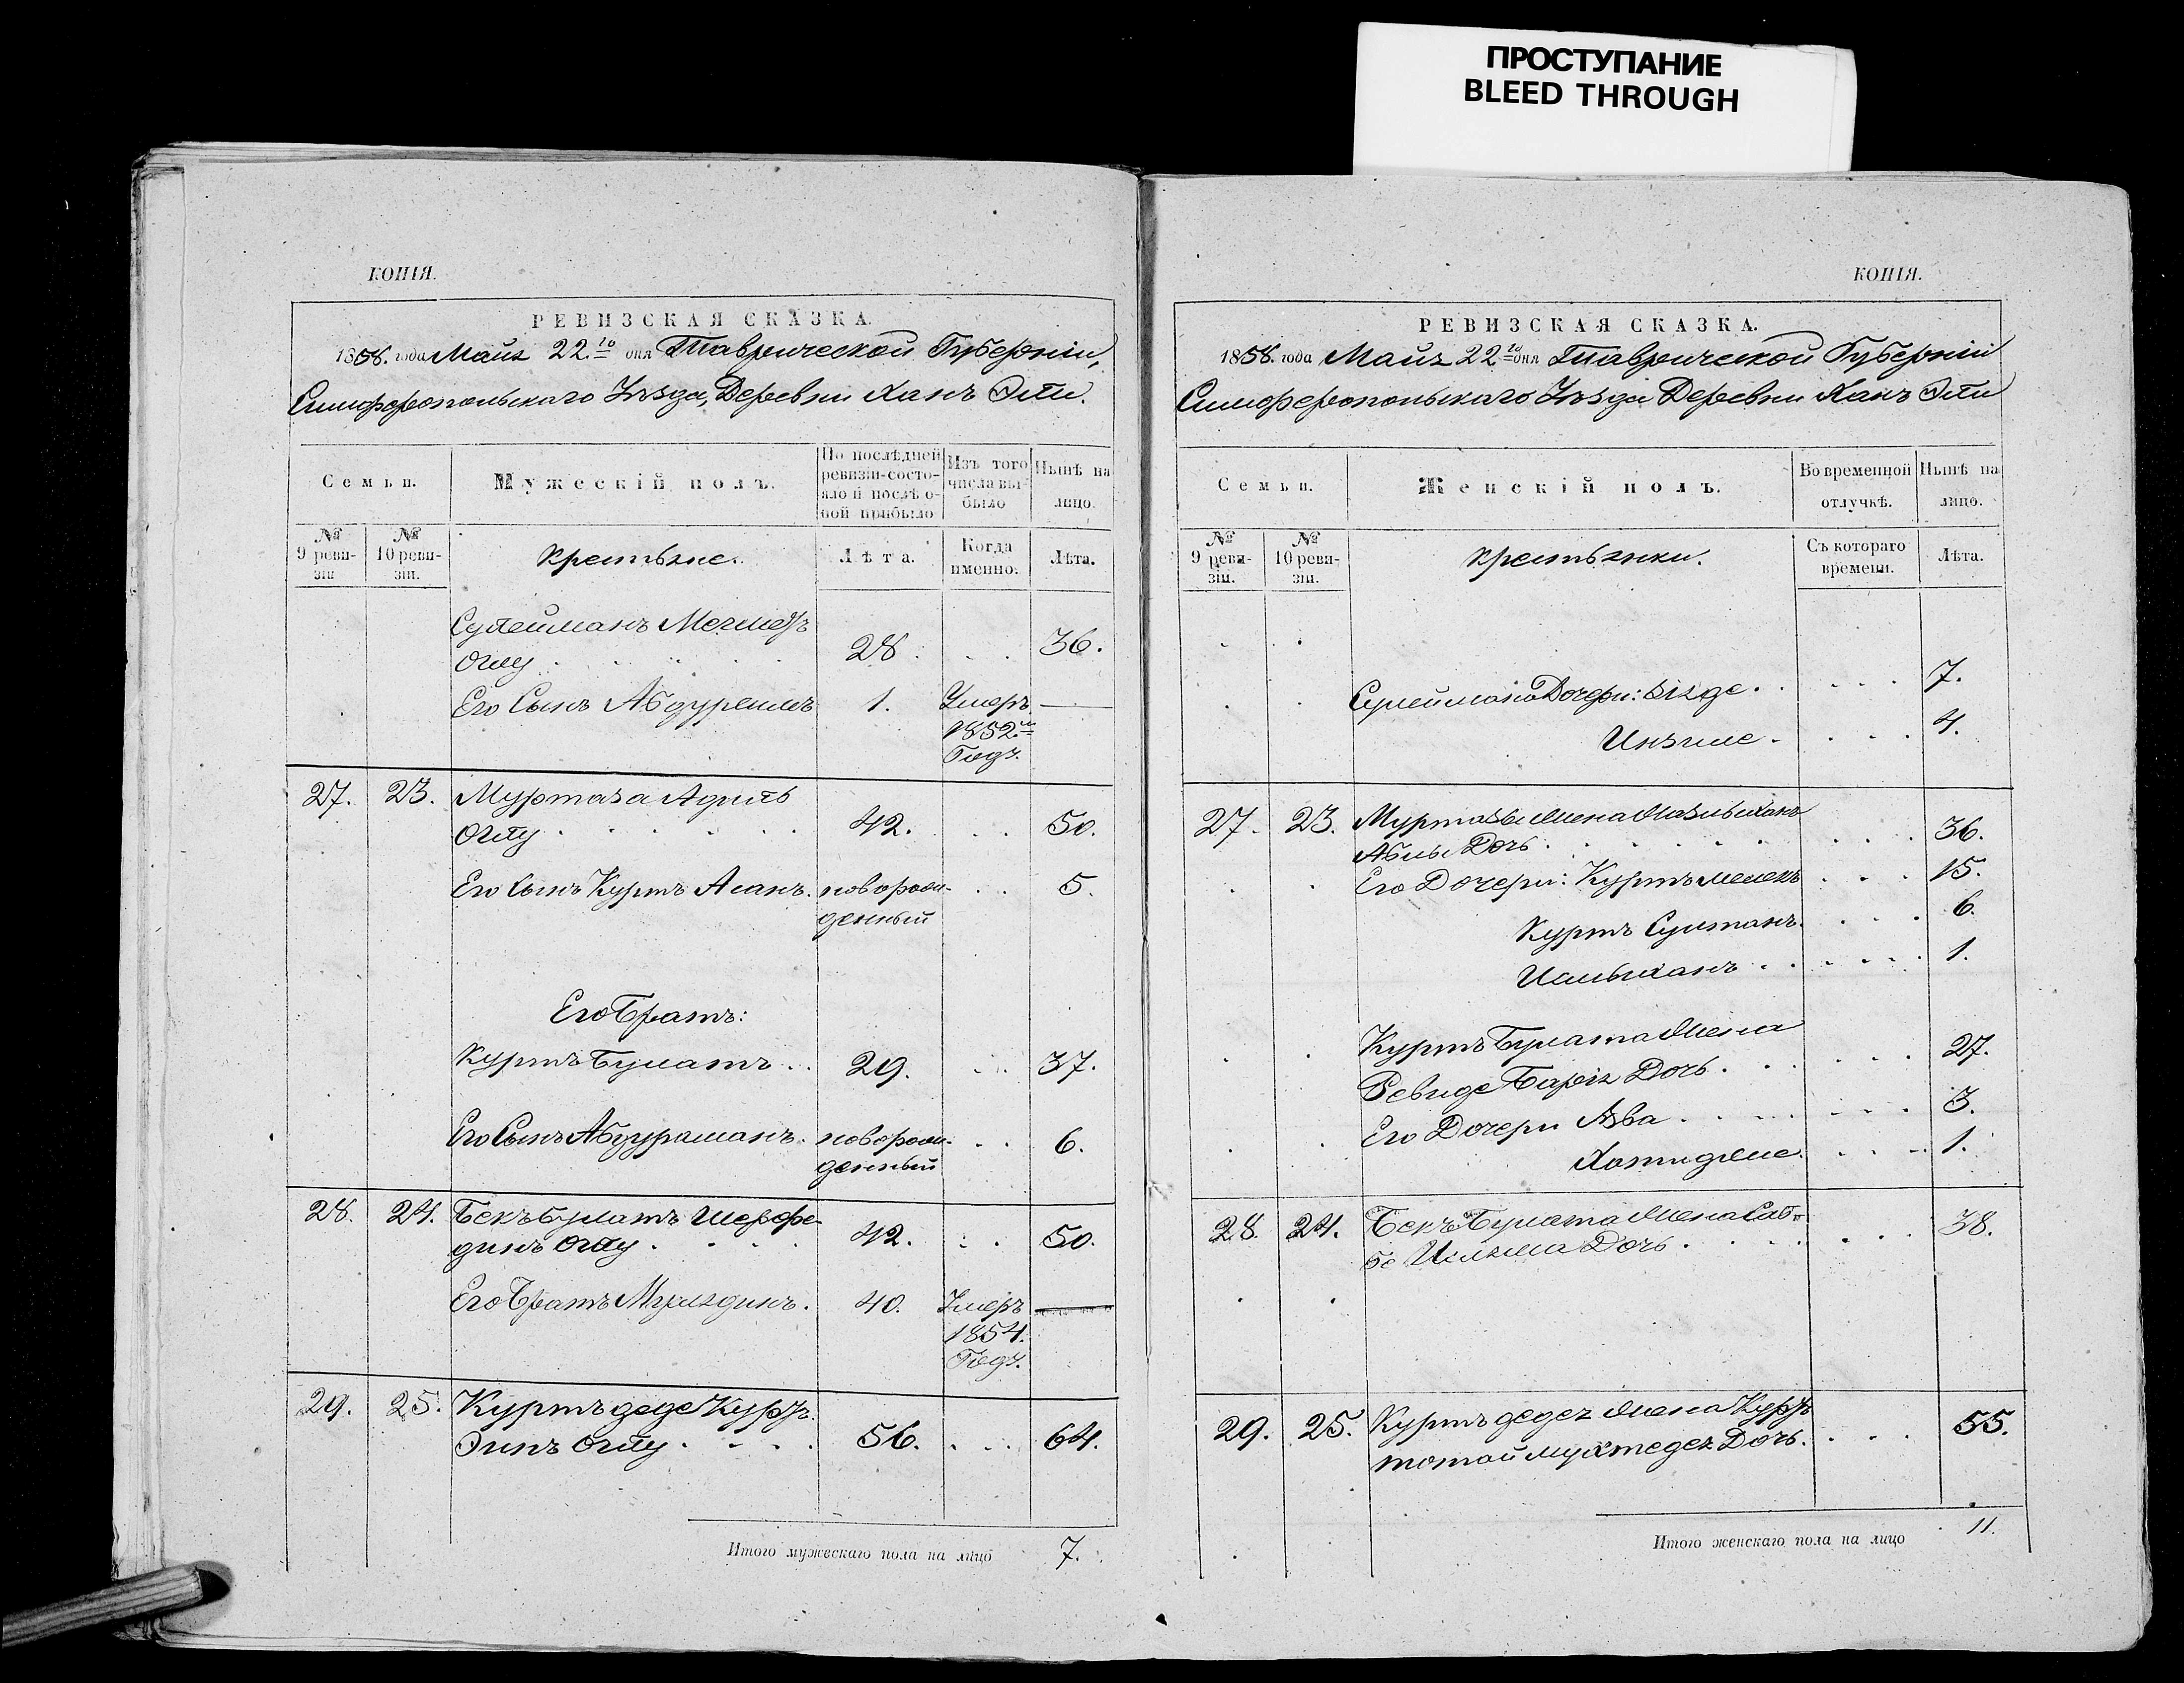 ПРОСТУПАНИЕ
BLEED THROUGH
КОПІЯ.
РЕВИЗСКАЯ СКАЗКА.
1858. года Маія 22го дня Таврической Губерніи,
Симферопольскаго Уѣзда, Деревни Ханъ Эли.
Семьи.
Мужескій полъ.
По послѣдней
ревизіи состо-
яло и послѣ о-
ной прибыло
Изъ того
числа вы-
было
Нынѣ на
лицо.
№
9 реви-
зіи
№
10 реви-
зіи.
Крестьяне.
Лѣта.
Когда
именно.
Лѣта.
Сулейманъ
Оглу 28. 36.
Его Сынъ 1. Умеръ —
1852го
Годъ.
27. 23. Муртаза Адиль
Оглу 42. 50.
Его Сынъ Куртъ Асанъ. новорож- 5.
денный
Его Братъ:
Куртъ Булатъ 29. 37.
Его Сынъ Абдураманъ. новорож- 6.
денный
28. 24. Бекъ Булатъ Шерфе-
динъ Оглу 42. 50.
Его Братъ 40. Умеръ —
1854.
Годъ.
29. 25. Куртъ деде
Оглу 56. 64.
Итого мужескаго пола на лицо 7.
КОПІЯ.
РЕВИЗСКАЯ СКАЗКА.
1858. года Маія 22го дня Таврической Губерніи
Симферопольскаго Уѣзда Деревни Ханъ Эли
Семьи.
Женскій полъ.
Во временной
отлучкѣ.
Нынѣ на
лицо.
№
9 реви-
зіи.
№
10 реви-
зіи.
Крестьянки.
Съ котораго
времени.
Лѣта.
Сулеймана Дочери: 7.
4.
27. 23. Муртазы Жена
Дочь 36.
Его Дочери: Куртъ мелекъ 15.
Куртъ Султанъ. 6.
1.
Куртъ Булата Жена
Ревиде Дочь 27.
Его Дочери Ава 3.
Хатидже. 1.
28. 24. Бекъ Булата Жена
Дочь 38.
29. 25. Куртъ деде Жена
Дочь. 55.
Итого женскаго пола на лицо 11.